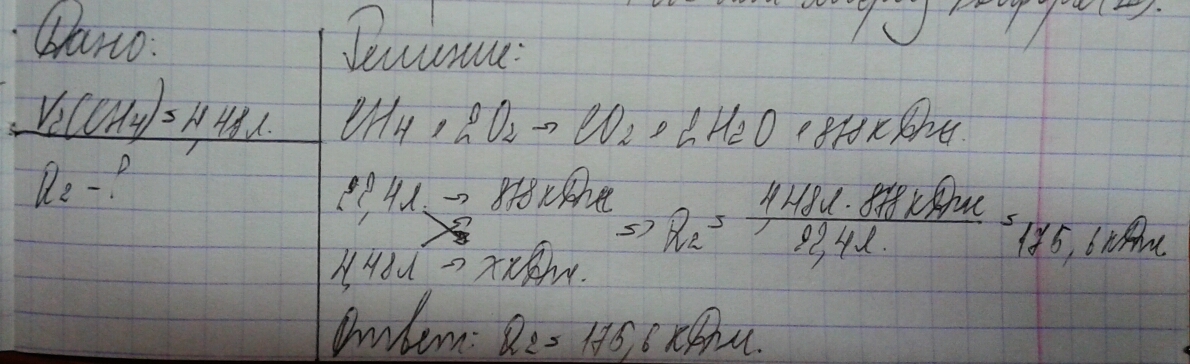 Дано:
V2(CH4) = 4,48 л.
Q2 - ?
Решение:
CH4 + 2O2 → CO2 + 2H2O + 878 кДж.
22,4 л. → 878 кДж
4,48 л → x кДж.
=> Q2 = 4,48 л · 878 кДж / 22,4 л. = 175,6 кДж
Ответ: Q2 = 175,6 кДж.